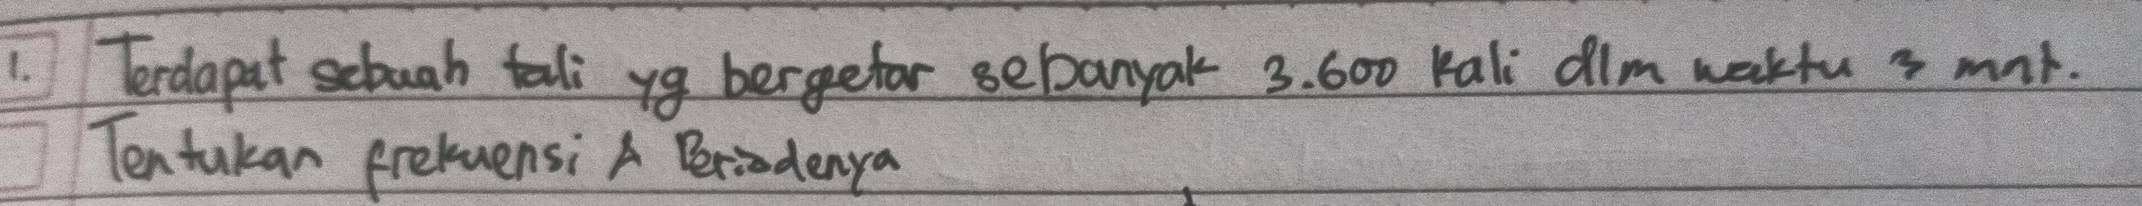 1. Terdapat sebuah tali yg bergetar sebanyak 3.600 kali dlm waktu 3 mnt.
Tentukan frekuensi & Periodenya